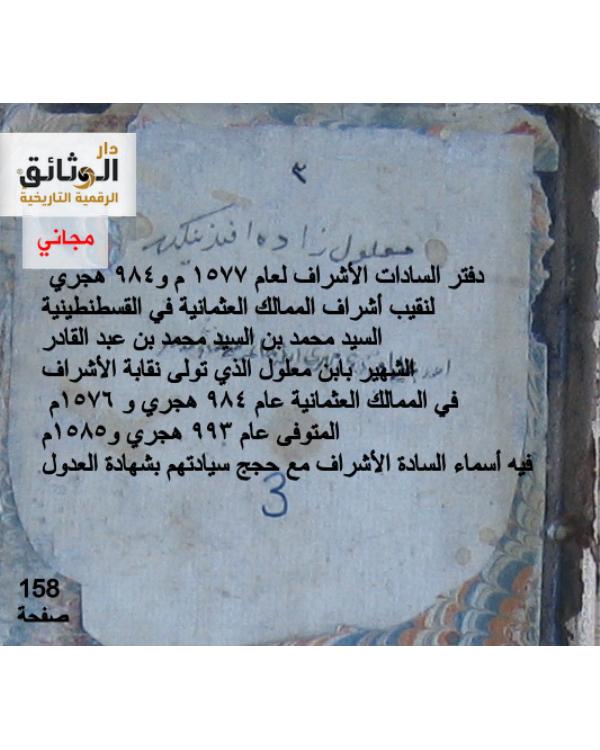 دار
الوثائق
الرقمية التاريخية
مجاني
٣
معلول زاده افندينكدر
دفتر السادات الأشراف لعام ١٥٧٧ م و٩٨٤ هجري
لنقيب أشراف الممالك العثمانية في القسطنطينية
السيد محمد بن السيد محمد بن عبد القادر
الشهير بابن معلول الذي تولى نقابة الأشراف
في الممالك العثمانية عام ٩٨٤ هجري و ١٥٧٦م
المتوفى عام ٩٩٣ هجري و١٥٨٥م
فيه أسماء السادة الأشراف مع حجج سيادتهم بشهادة العدول
3
158
صفحة